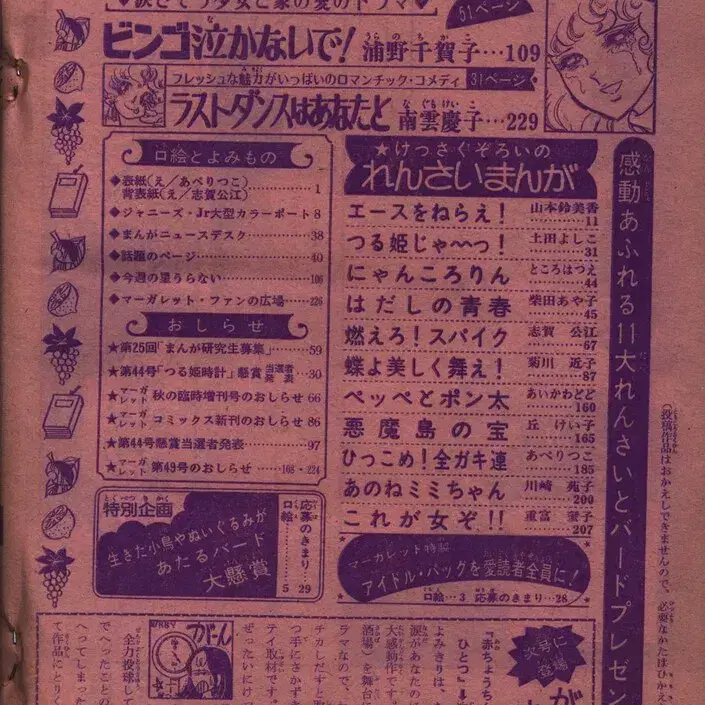 ♥涙さそう少女と家の愛のドラマ♥
51ページ
ビンゴ泣かないで! 浦野千賀子…109
フレッシュな魅力がいっぱいのロマンチック・コメディ 31ページ
ラストダンスはあなたと 南雲慶子…229
口絵とよみもの
◆表紙(え/あべりつこ)
背表紙(え/志賀公江)…1
◆ジャニーズ・Jr大型カラーポート8
◆まんがニュースデスク…38
◆話題のページ…40
◆今週の星うらない…106
◆マーガレット・ファンの広場…226
おしらせ
★第25回「まんが研究生募集」…59
★第44号「つる姫時計」懸賞当選者発表…30
★マーガレット 秋の臨時増刊号のおしらせ66
★マーガレット コミックス新刊のおしらせ86
★第44号懸賞当選者発表…97
★マーガレット 第49号のおしらせ…108・224
特別企画
生きた小鳥やぬいぐるみが
あたるバード
大懸賞
応募のきまり…29
口絵…5
★けっさくぞろいの
れんさいまんが
エースをねらえ! 山本鈴美香 11
つる姫じゃ〜っ! 土田よしこ 31
にゃんころりん ところはつえ 44
はだしの青春 柴田あや子 45
燃えろ!スパイク 志賀公江 67
蝶よ美しく舞え! 菊川近子 87
ペッペとポン太 あいかわとど 160
悪魔島の宝 丘けい子 165
ひっこめ!全ガキ連 あべりつこ 185
あのねミミちゃん 川崎苑子 200
これが女ぞ!! 重富 207
マーガレット特製
アイドル・バッグを愛読者全員に!
口絵…3 応募のきまり…28
感動あふれる11大れんさいとバードプレゼン
(投稿作品はおかえしできませんので、必要なかたはひかえ
次号に登場
『赤ちょうち
ひとつ』
よみきりは、
涙があなたの
大感動作です。
酒場)を舞台
ラマなので、
チカしだすと
つ手にさかずき
ティ取材です。
ぜったいにけっ
がーん
全力投球して
でへったことの
へってしまった
て作品にとりく